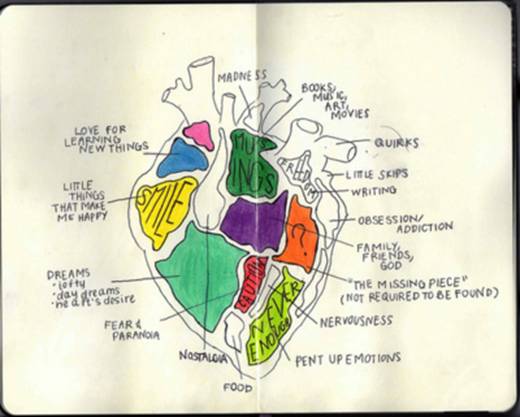 MADNESS
BOOKS,
MUSIC,
ART,
MOVIES
LOVE FOR
LEARNING
NEW THINGS
MUS
INGS
QUIRKS
LITTLE SKIPS
WRITING
LITTLE
THINGS
THAT MAKE
ME HAPPY
SMILE
OBSESSION/
ADDICTION
?
FAMILY,
FRIENDS,
GOD
DREAMS
· lofty
· day dreams
· heart's desire
CAUTION
"THE MISSING PIECE"
(NOT REQUIRED TO BE FOUND)
NEVER
ENOUGH
FEAR &
PARANOIA
NERVOUSNESS
NOSTALGIA
PENT UP EMOTIONS
FOOD